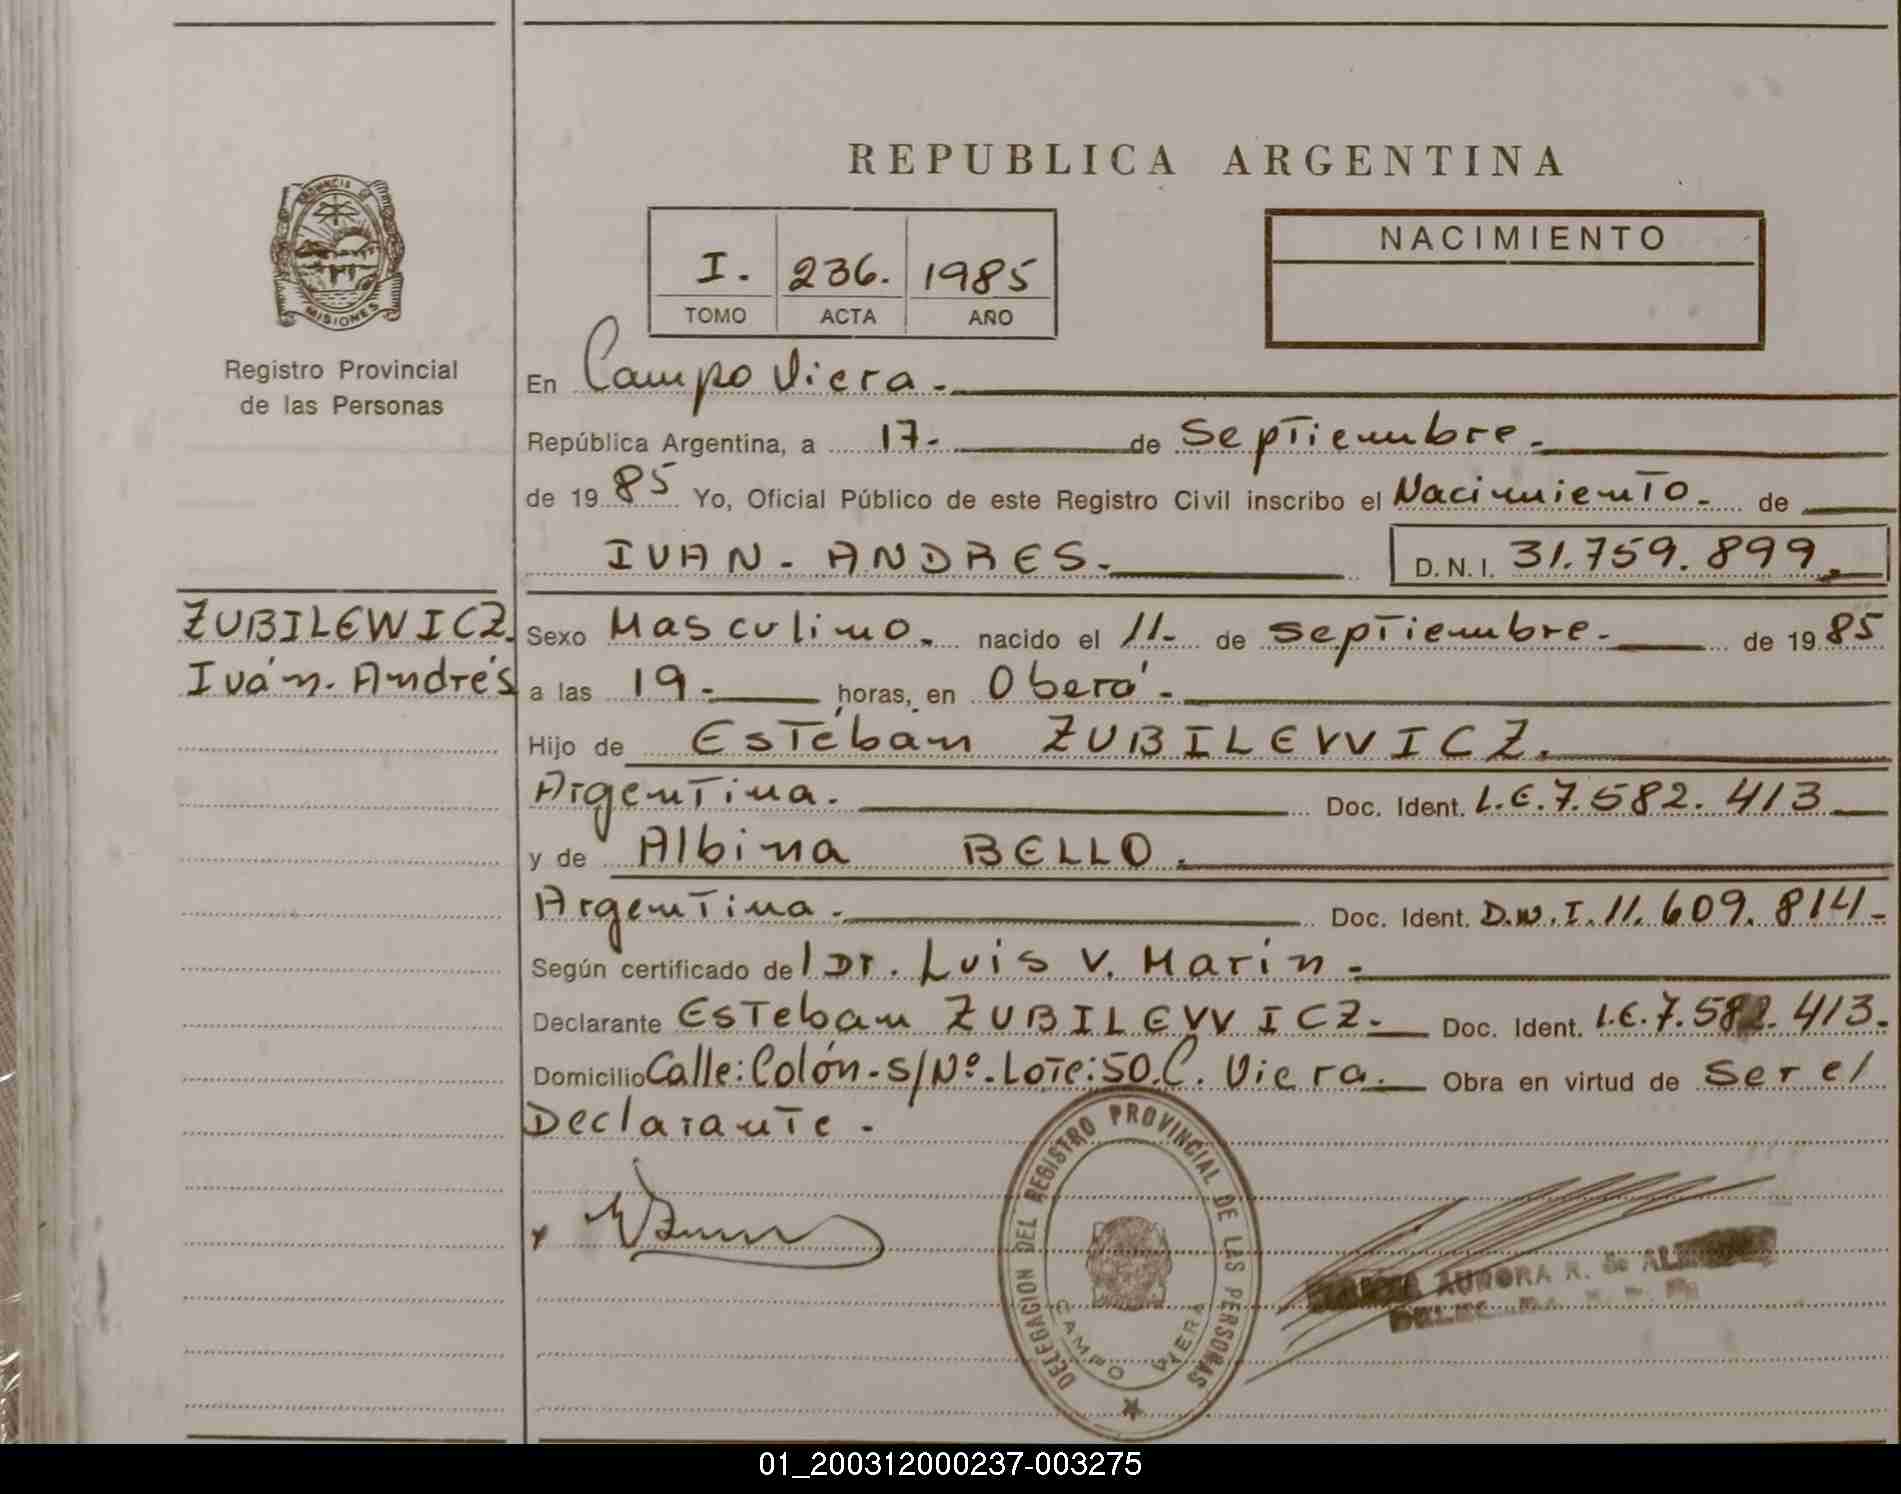 REPUBLICA ARGENTINA
PROVINCIA DE
MISIONES
Registro Provincial
de las Personas
I. 236. 1985
TOMO ACTA AÑO
NACIMIENTO
En Campo Viera.
República Argentina, a 17. de Septiembre.
de 1985 Yo, Oficial Público de este Registro Civil inscribo el Nacimiento. de
IVAN. ANDRES. D. N. I. 31.759.899
ZUBILEWICZ.
Iván. Andrés
Sexo Masculino. nacido el 11. de septiembre. de 1985
a las 19. horas, en Oberá.
Hijo de Estéban ZUBILEWICZ.
Argentina. Doc. Ident. L.E.7.582.413
y de Albina BELLO.
Argentina. Doc. Ident. D.N.I.11.609.814-
Según certificado del Dr. Luis V. Marin.
Declarante Esteban ZUBILEWICZ. Doc. Ident. L.E.7.582.413.
Domicilio Calle: Colón. S/Nº. Lote: 50. C. Viera. Obra en virtud de Ser el
Declarante.
DELEGACION DEL REGISTRO PROVINCIAL DE LAS PERSONAS
CAMPO VIERA
AURORA R. de
01_200312000237-003275